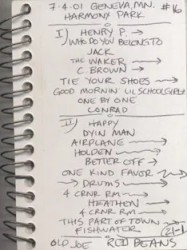 7-4-01 GENEVA, MN. #16
HARMONY PARK
I) HENRY P. →
WHO DO YOU BELONG TO
JACK
THE WAKER →
C BROWN →
TIE YOUR SHOES →
GOOD MORNIN' LIL SCHOOL GIRL
ONE BY ONE
CONRAD
II) HAPPY
DYIN MAN
AIRPLANE →
HOLDEN →
BETTER OFF →
ONE KIND FAVOR →
→ DRUMS →
4 CRNR RM →
HEATHEN →
4 CRNR RM →
THIS PART OF TOWN →
FISHWATER
OLD JOE RED BEANS